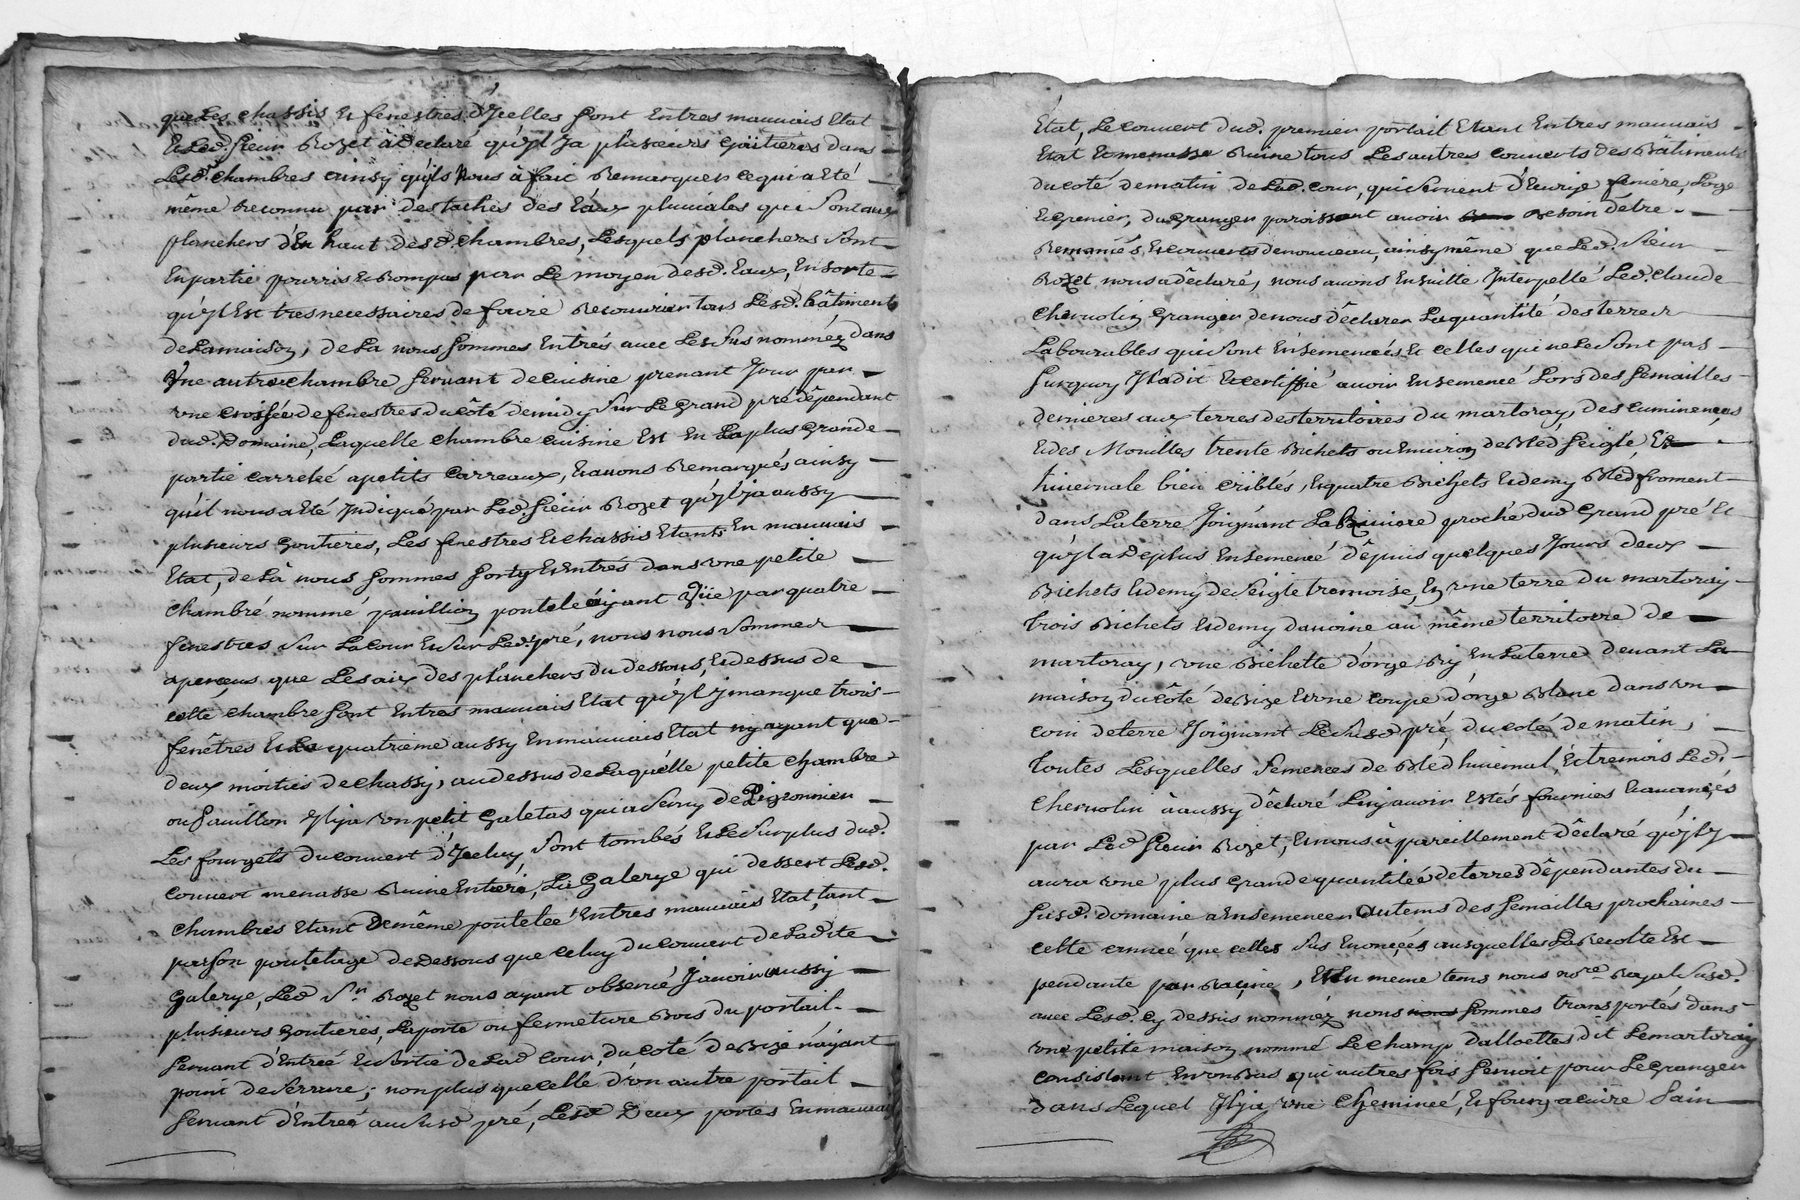 que Les chassis Et fenestres d'Jcelles sont Entres mauvais Etat
Et Led. sieur Rozet a Declaré qu'jl ja plusieurs goutieres dans
Lesd. chambres ainsy qu'jls nous a fait Remarquer ce qui a Eté
même Reconnu par des taches des Eaux pluviales qui sont aux
planchers d'En haut desd. chambres, Lesquels planchers sont
En partie pourris Et Rompus par Le moyen desd. Eaux, En sorte
qu'jl Est tres necessaires de faire Recouvrir tous Lesd. bâtiments
de Lamaison, de La nous sommes Entrés avec Les sus nommés dans
Vne autre chambre servant de cuisine prenant Jour par
vne croisée de fenestres du côté de midy sur Le Grand pré dépendant
dud. Domaine, Laquelle chambre cuisine Est En La plus Grande
partie carrelé a petits carreaux, Et avons Remarqués ainsy
qu'il nous a Eté Jndiqué par Led. sieur Rozet qu'jl ja aussy
plusieurs goutieres, Les fenestres Et chassis Etants En mauvais
Etat, de La nous sommes sorty Et Entrés dans vne petite
chambre nommé pavillion pontelé ayant vüe par quatre
fenestres sur La cour Et sur Led. pré, nous nous sommes
aperceus que Les aix des planchers du dessous, Et dessus de
cette chambre sont Entres mauvais Etat qu'jl y manque trois
fenêtres Et La quatrieme aussy En mauvais Etat ny ayant que
deux moitiés de chassis, au dessus de Laquelle petite chambre
ou Pavillon Jl ja vn petit Galetas qui a servy de Pigeonnier
Les fourgets du couvert d'Jceluy sont tombés Et Le surplus dud.
couvert menasse Ruine Entiere, La Galerye qui dessert Lesd.
chambres Etant De même pontelée Entres mauvais Etat, tant
par son pontelage de Dessous que celuy du couvert de Ladite
Galerye, Led. Sr. Rozet nous ayant observé J avoir aussy
plusieurs goutieres, La porte ou fermeture Bois du portail
servant d'Entrée Et sortie de Lad. cour, du coté de Bize n'ayant
point de serrure; non plus que celle d'vn autre portail
servant d'Entrée au susd. pré, Lesd. Deux portes En mauvais
Etat, Le couvert dud. premier portail Etant Entres mauvais
Etat Et menasse Ruine tous Les autres couverts des Bâtiments
du coté de matin de Lad. cour, qui servent d'Ecurje feniere, Loge
Et grenier, du Granger paroissent avoir Besoin detre
Remaniés, Et couverts de nouveau, ainsy même que Led. sieur
Rozet nous a dêclaré, nous avons Ensuitte Jnterpellé Led. Claude
Chervolin Granger de nous dêclarer La quantité des terres
Labourables qui sont Ensemencés Et celles qui ne Le sont pas
surquoy Jl a dit Et certiffié avoir Ensemencé Lors des semailles
dernieres aux terres des territoires du martoray, des cuminenges,
Et des Mouilles trente Bichets ou Environ de Bléd seigle Et
hivernale bien criblés, Et quatre Bichets Et demy Bléd froment
dans La terre Joignant La proche dud. Grand pré Et
qu'jl a De plus Ensemencé dêpuis quelques Jours deux
Bichets Et demy de seigle tremoise En vne terre du martoray
trois Bichets Et demy d'avoine au même territoire de
martoray, vne Bichette d'orge En La terre devant La
maison du côté de Bize Et vne coupe d'orge Blanc dans vn
coin de terre Joignant Le susd. pré, du coté de matin,
toutes Lesquelles semences de Bléd hivernal, Et tremois Led.
Chervolin à aussy dêclaré Luy avoir Estés fournies Et avancés
par Led. sieur Rozet, Et nous à pareillement dêclaré qu'jl y
aura vne plus grande quantitée de terres dépendantes du
susd. domaine a Ensemencer au tems des semailles prochaines
cette année que celles sus Enoncées ausquelles La Recolte Est
pendante par Racine, Et En meme tems nous nore. Royal susd.
avec Lesd. cy dessus nommés nous sommes transportés dans
vne petite maison nommé Le champ Dalloettes dit Le martoray
consistant En vn Bas qui autres fois servoit pour Le Granger
dans Lequel Jl ja vne cheminée, Et four a cuire Pain